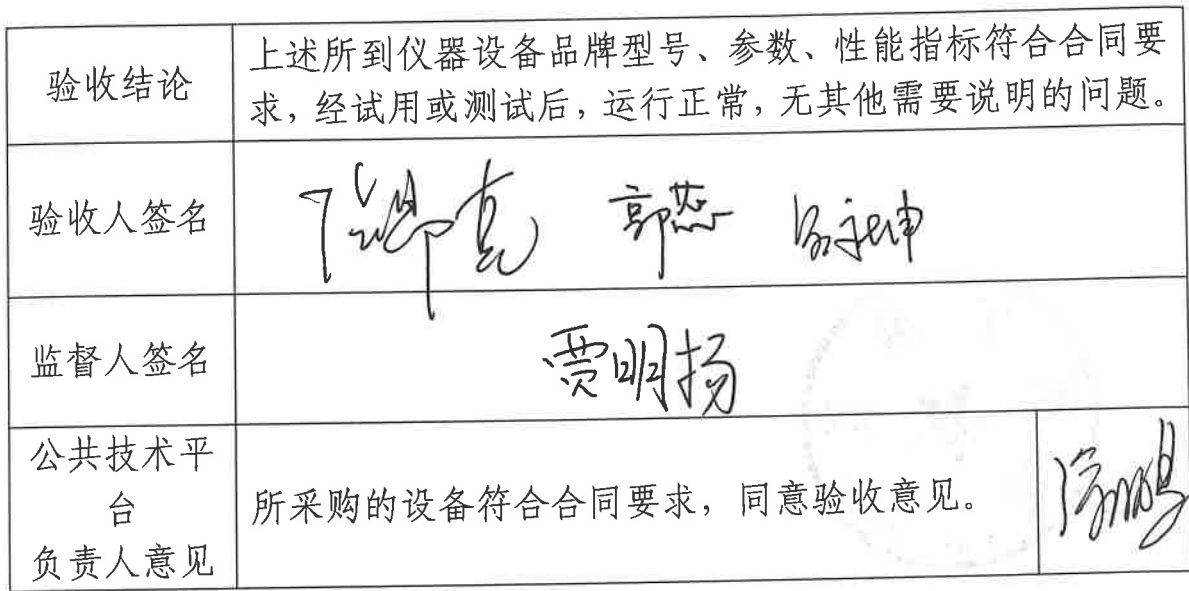 验收结论
上述所到仪器设备品牌型号、参数、性能指标符合合同要
求，经试用或测试后，运行正常，无其他需要说明的问题。
验收人签名
郭蕊
监督人签名
贾明扬
公共技术平
台
负责人意见
所采购的设备符合合同要求，同意验收意见。